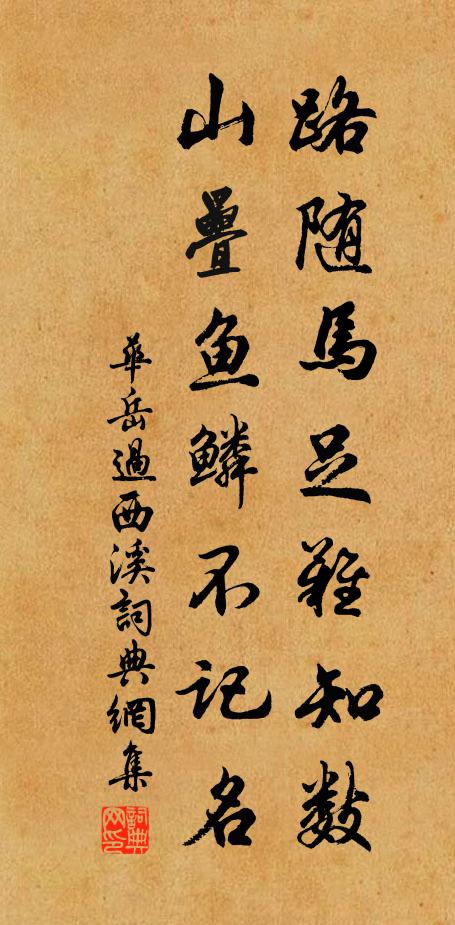 路随馬足難知数
山疊鱼鳞不记名
華岳過西溪詞典網集
詞典网印